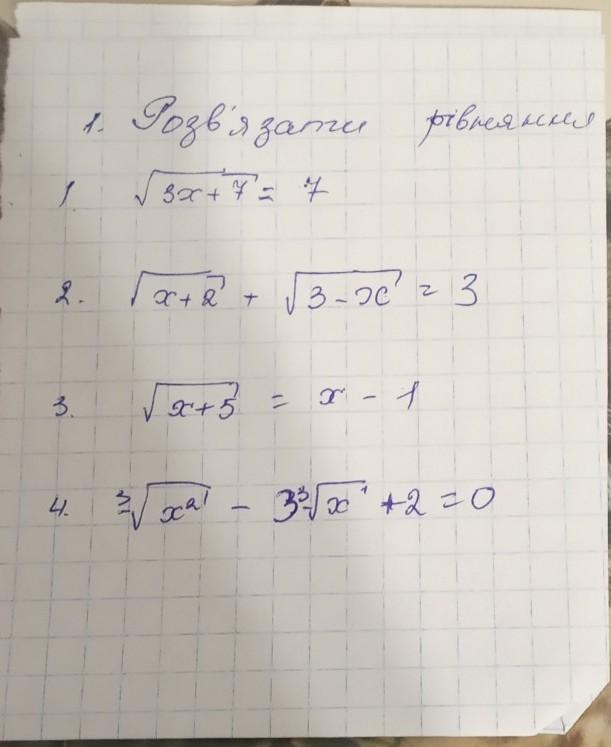 1. Розв'язати рівняння
1. √3x+7 = 7
2. √x+2 + √3-x = 3
3. √x+5 = x - 1
4. ³√x² - 3³√x + 2 = 0